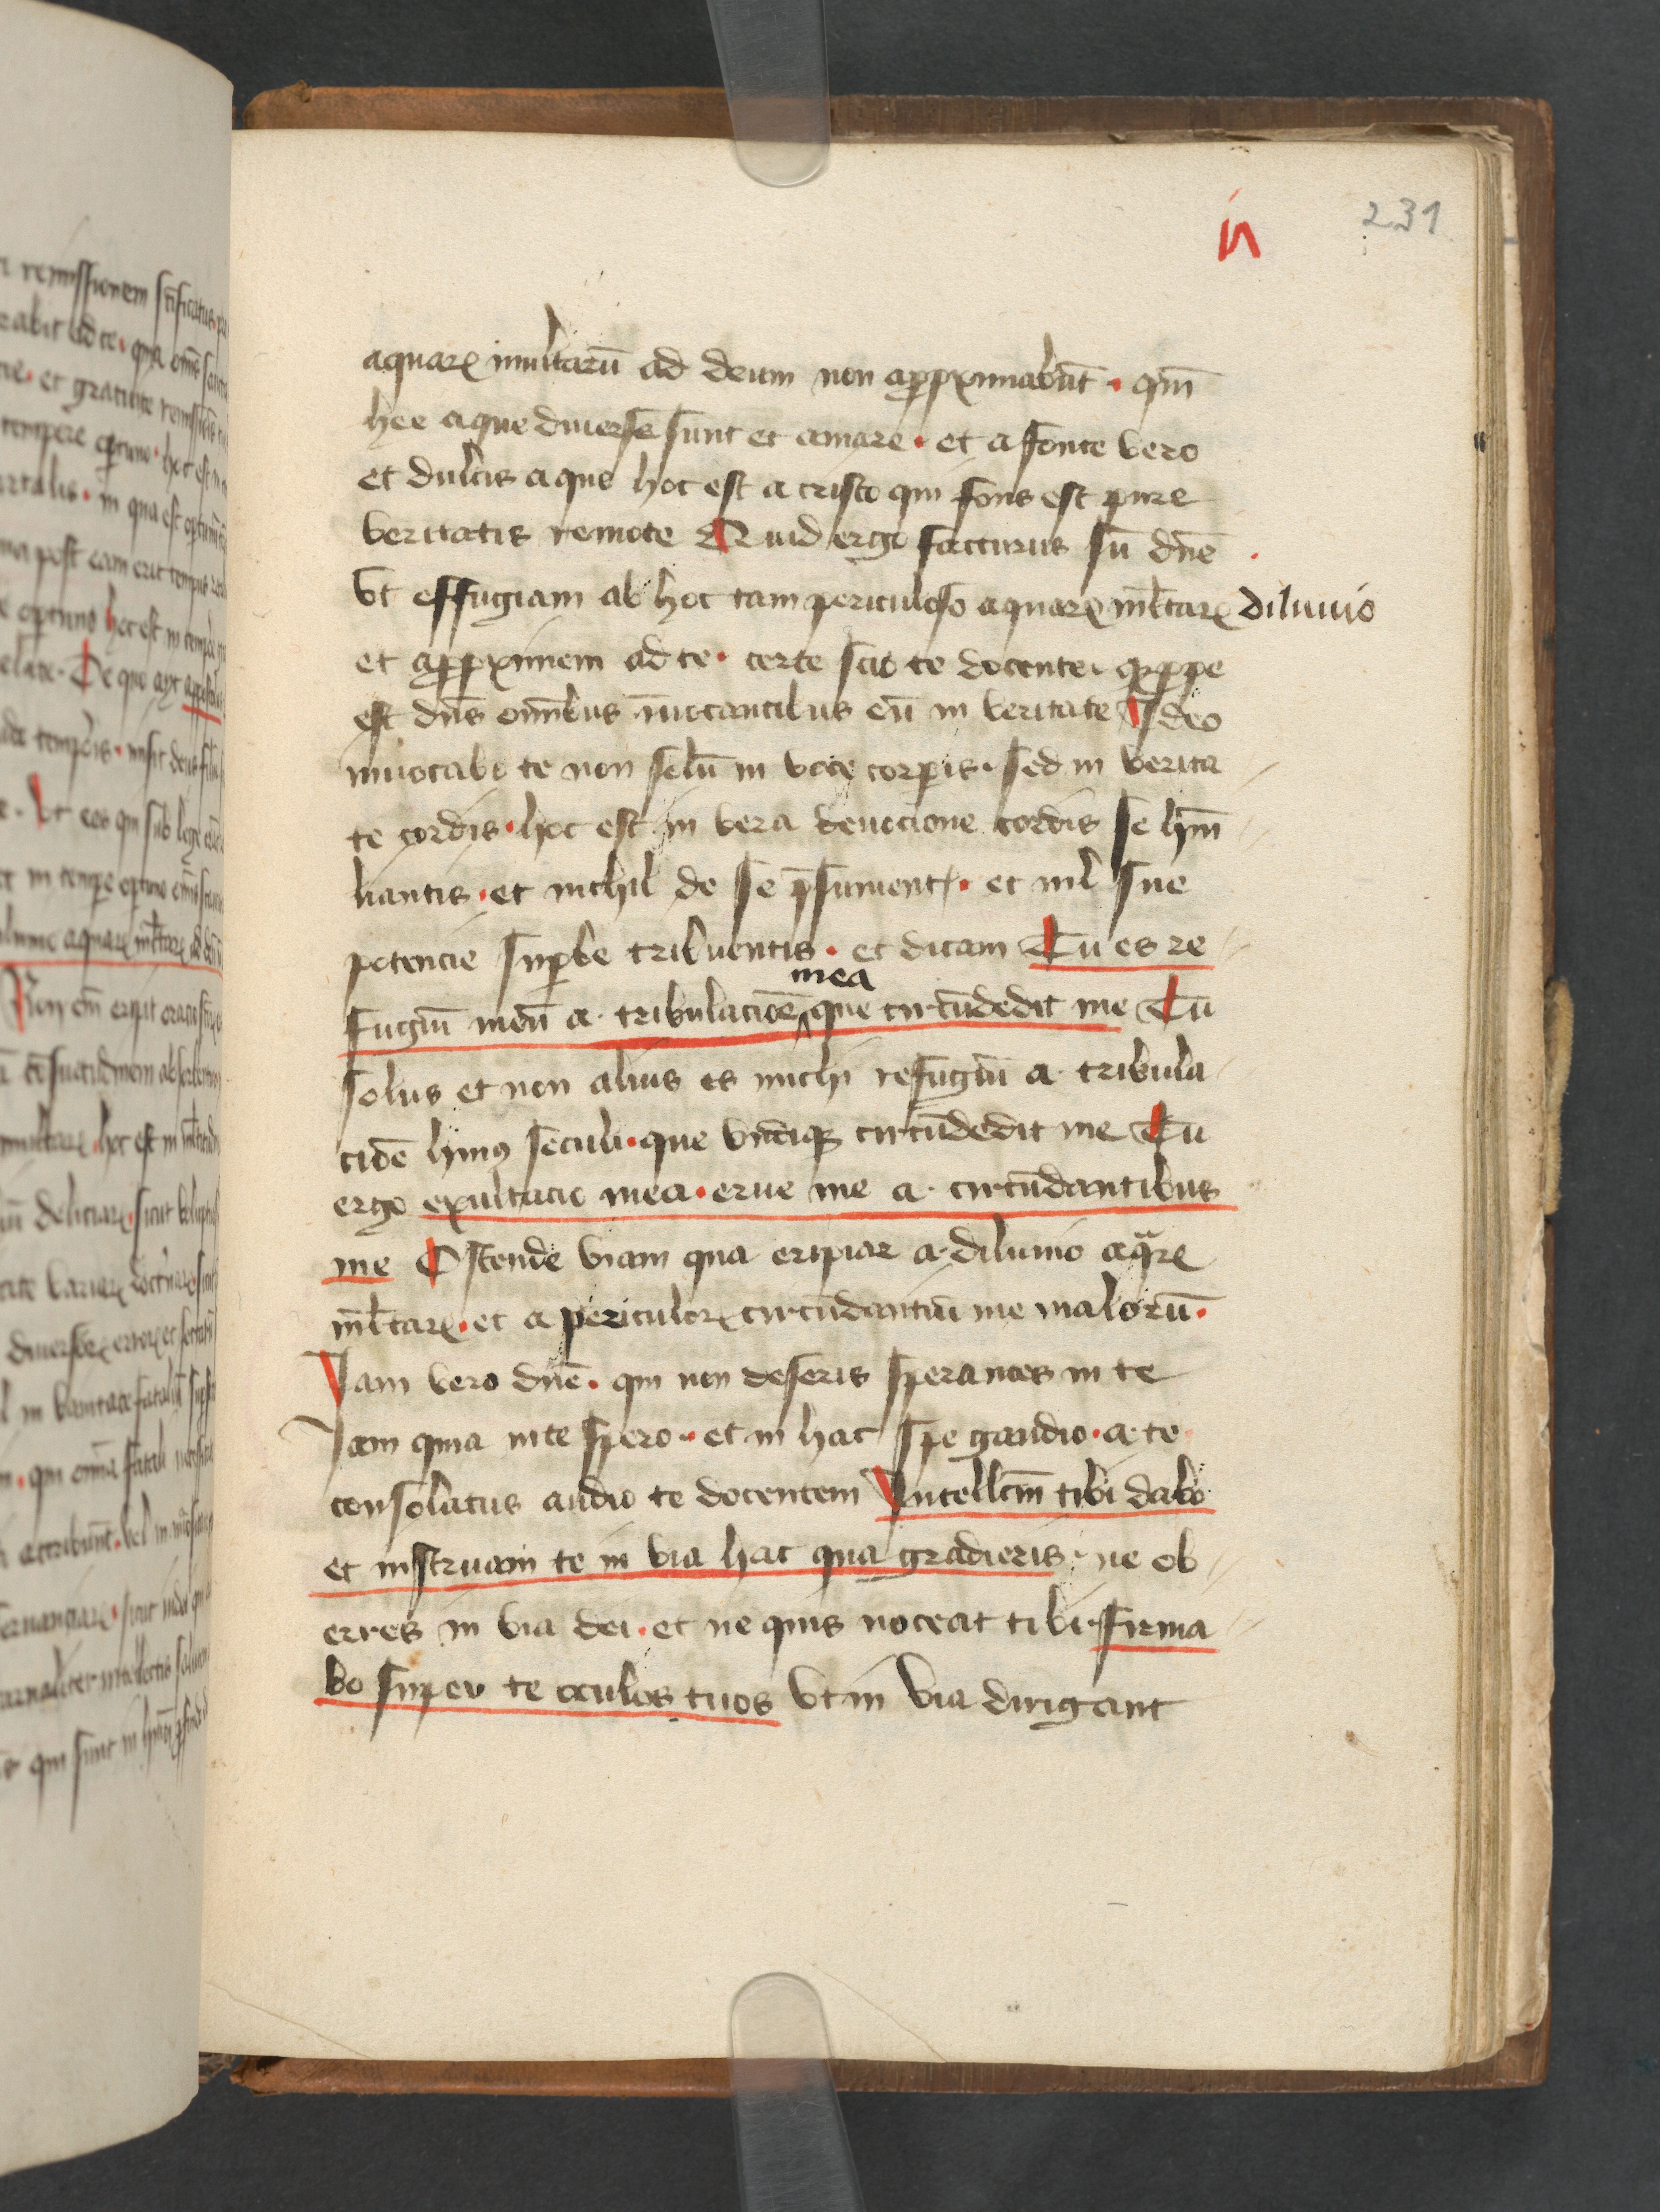 in 231
aquaꝝ multarū ad deum non apꝓximabūt · qm̄
hee aque diuerse sunt et amare · et a fonte vero
et dulcis aque hoc est a cristo qui fons est pure
veritatis remote Quid ergo facturus sū dn̄e ·
Vt effugiam ab hoc tam periculoso aquaꝝ ml̄taꝝ diluuio
et apꝓximem ad te · certe scio te docente · qꝛ ꝓpe
est dn̄s om̄ibus īuocantibus eū in veritate Ideo
inuocabo te non solū in voce corꝑis · sed in verita
te cordis · hoc est in vera deuocione cordis se hm̄i
liantis · et nichil de se p̄sumentꝭ · et nil̄ sue
potencie suꝑbe tribuentis · et dicam Tu es re
fugiū meū a tribulacōe mea que circūdedit me Tu
solus et non alius es michi refugiū a tribula
cōe huiꝰ seculi · que vndiqꝫ circūdedit me Tu
ergo exultacio mea · erue me a circūdantibus
me Ostende viam qua eripiar a diluuio aqᵃꝝ
ml̄taꝝ · et a periculoꝝ circūdantiū me malorū ·
Iam vero dn̄e · qui non deseris sperantes in te
Iam quia in te spero · et in hac spe gaudio · a te
consolatus audio te docentem Intellc̄m tibi dabo
et instruam te in via hac qua gradieris · ne ob
erres in via dei · et ne quis noceat tibi · firma
bo super te oculos tuos Vt in via dirigant